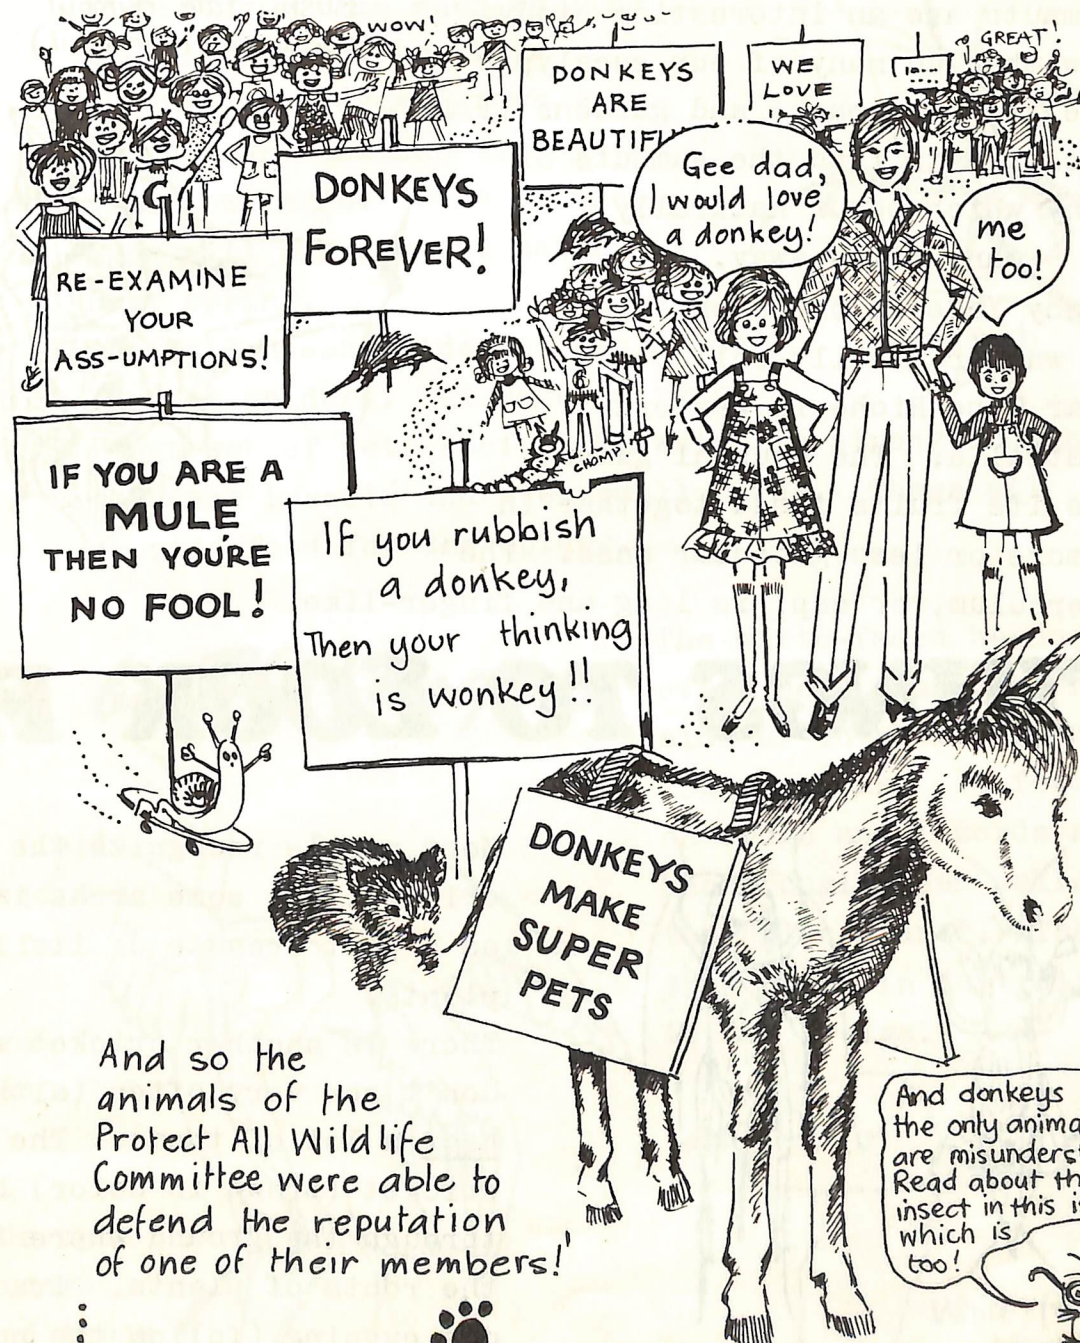 WOW!
GREAT!
DONKEYS
ARE
BEAUTIFU
WE
LOVE
Gee dad,
I would love
a donkey!
me
too!
DONKEYS
FOREVER!
RE-EXAMINE
YOUR
ASS-UMPTIONS!
G
G
CHOMP
IF YOU ARE A
MULE
THEN YOU'RE
NO FOOL!
If you rubbish
a donkey,
Then your thinking
is wonkey!!
DONKEYS
MAKE
SUPER
PETS
And so the
animals of the
Protect All Wildlife
Committee were able to
defend the reputation
of one of their members!
And donkeys
the only anima
are misunderst
Read about th
insect in this i
which is
too!